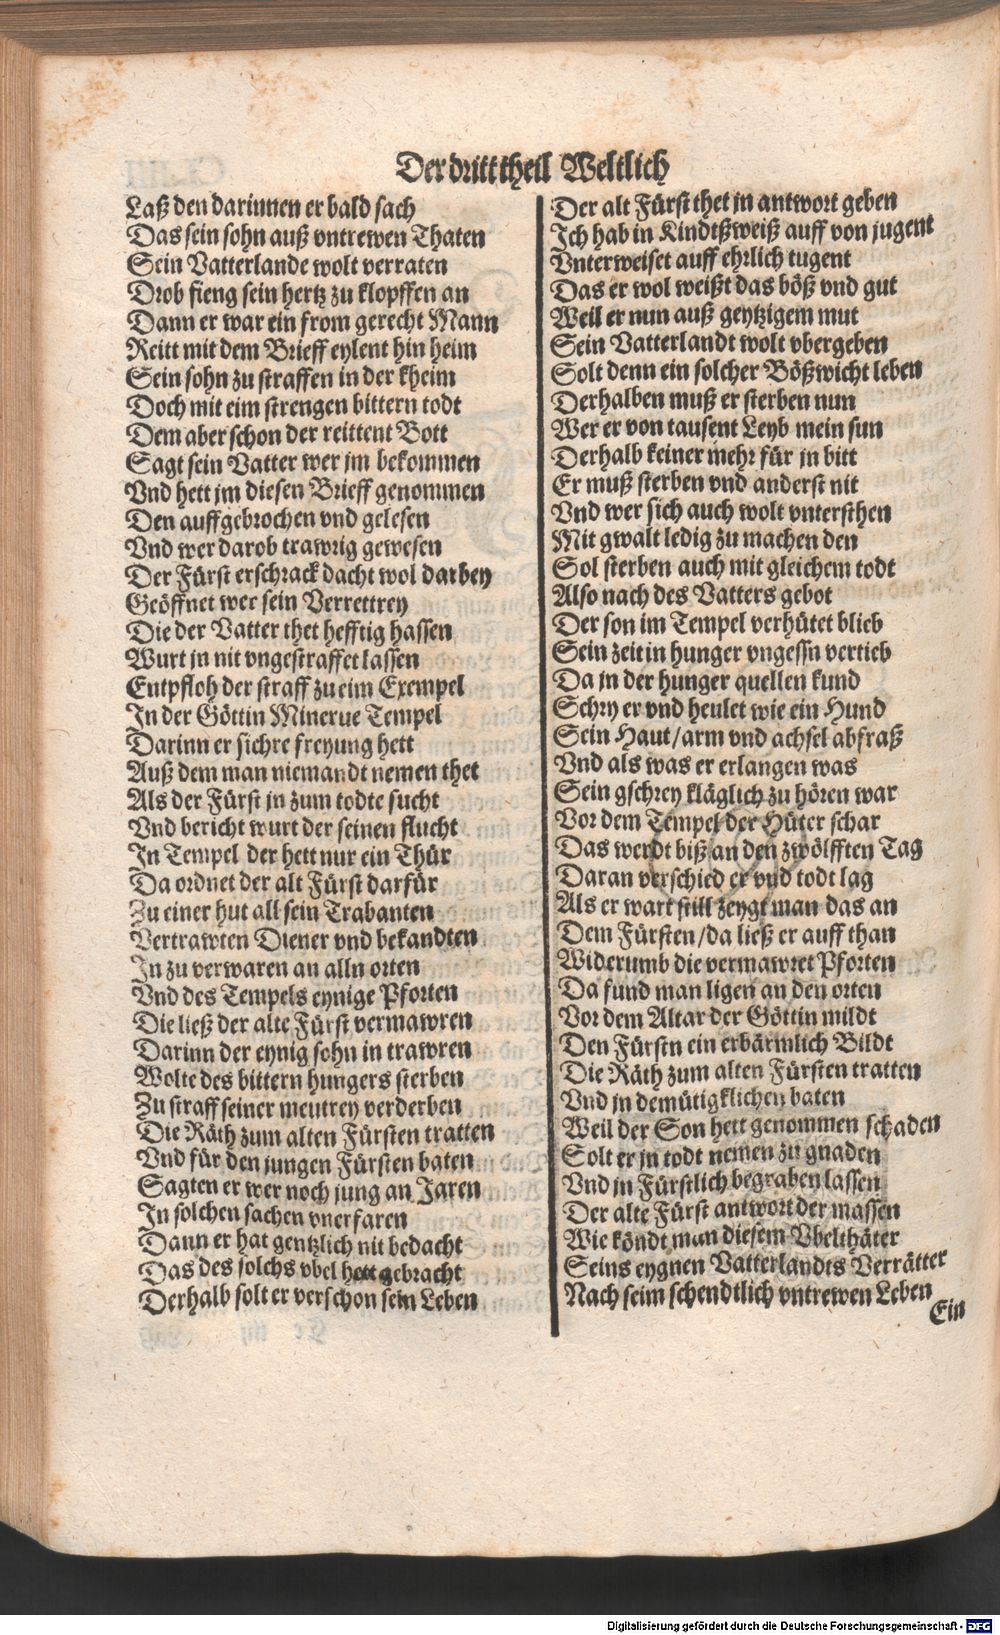 Der dritt theil Weltlich
Laß den darinnen er bald sach
Das sein sohn auß vntrewen Thaten
Sein Vatterlande wolt verraten
Drob fieng sein hertz zu klopffen an
Dann er war ein from gerecht Mann
Reitt mit dem Brieff eylent hin heim
Sein sohn zu straffen in der kheim
Doch mit eim strengen bittern todt
Dem aber schon der reittent Bott
Sagt sein Vatter wer jm bekommen
Vnd hett jm diesen Brieff genommen
Den auffgebrochen vnd gelesen
Vnd wer darob trawrig gewesen
Der Fürst erschrack dacht wol darbey
Geöffnet wer sein Verrettrey
Die der Vatter thet hefftig hassen
Wurt jn nit vngestraffet lassen
Entpfloh der straff zu eim Exempel
In der Göttin Minerue Tempel
Darinn er sichre freyung hett
Auß dem man niemandt nemen thet
Als der Fürst jn zum todte sucht
Vnd bericht wurt der seinen flucht
In Tempel der hett nur ein Thür
Da ordnet der alt Fürst darfür
Zu einer hut all sein Trabanten
Vertrawten Diener vnd bekandten
In zu verwaren an alln orten
Vnd des Tempels eynige Pforten
Die ließ der alte Fürst vermawren
Darinn der eynig sohn in trawren
Wolte des bittern hungers sterben
Zu straff seiner meutrey verderben
Die Räth zum alten Fürsten tratten
Vnd für den jungen Fürsten baten
Sagten er wer noch jung an Jaren
In solchen sachen vnerfaren
Dann er hat gentzlich nit bedacht
Das des solchs vbel hett gebracht
Derhalb solt er verschon sein Leben
Der alt Fürst thet jn antwort geben
Ich hab in Kindtßweiß auff von jugent
Vnterweiset auff ehrlich tugent
Das er wol weißt das böß vnd gut
Weil er nun auß geytzigem mut
Sein Vatterlandt wolt vbergeben
Solt denn ein solcher Bößwicht leben
Derhalben muß er sterben nun
Wer er von tausent Leyb mein sun
Derhalb keiner mehr für jn bitt
Er muß sterben vnd anderst nit
Vnd wer sich auch wolt vntersthen
Mit gwalt ledig zu machen den
Sol sterben auch mit gleichem todt
Also nach des Vatters gebot
Der son im Tempel verhütet blieb
Sein zeit in hunger vngessn vertieb
Da in der hunger quellen kund
Schry er vnd heulet wie ein Hund
Sein Haut/arm vnd achsel abfraß
Vnd als was er erlangen was
Sein gschrey kläglich zu hören war
Vor dem Tempel der Hüter schar
Das werdt biß an den zwölfften Tag
Daran verschied er vnd todt lag
Als er wart still zeygt man das an
Dem Fürsten/da ließ er auff than
Widerumb die vermawret Pforten
Da fund man ligen an den orten
Vor dem Altar der Göttin mildt
Den Fürstn ein erbärmlich Bildt
Die Räth zum alten Fürsten tratten
Vnd jn demütigklichen baten
Weil der Son hett genommen schaden
Solt er jn todt nemen zu gnaden
Vnd jn Fürstlich begraben lassen
Der alte Fürst antwort der massen
Wie köndt man diesem Vbelthäter
Seins eygnen Vatterlandts Verrätter
Nach seim schendtlich vntrewen Leben
Ein
Digitalisierung gefördert durch die Deutsche Forschungsgemeinschaft - DFG